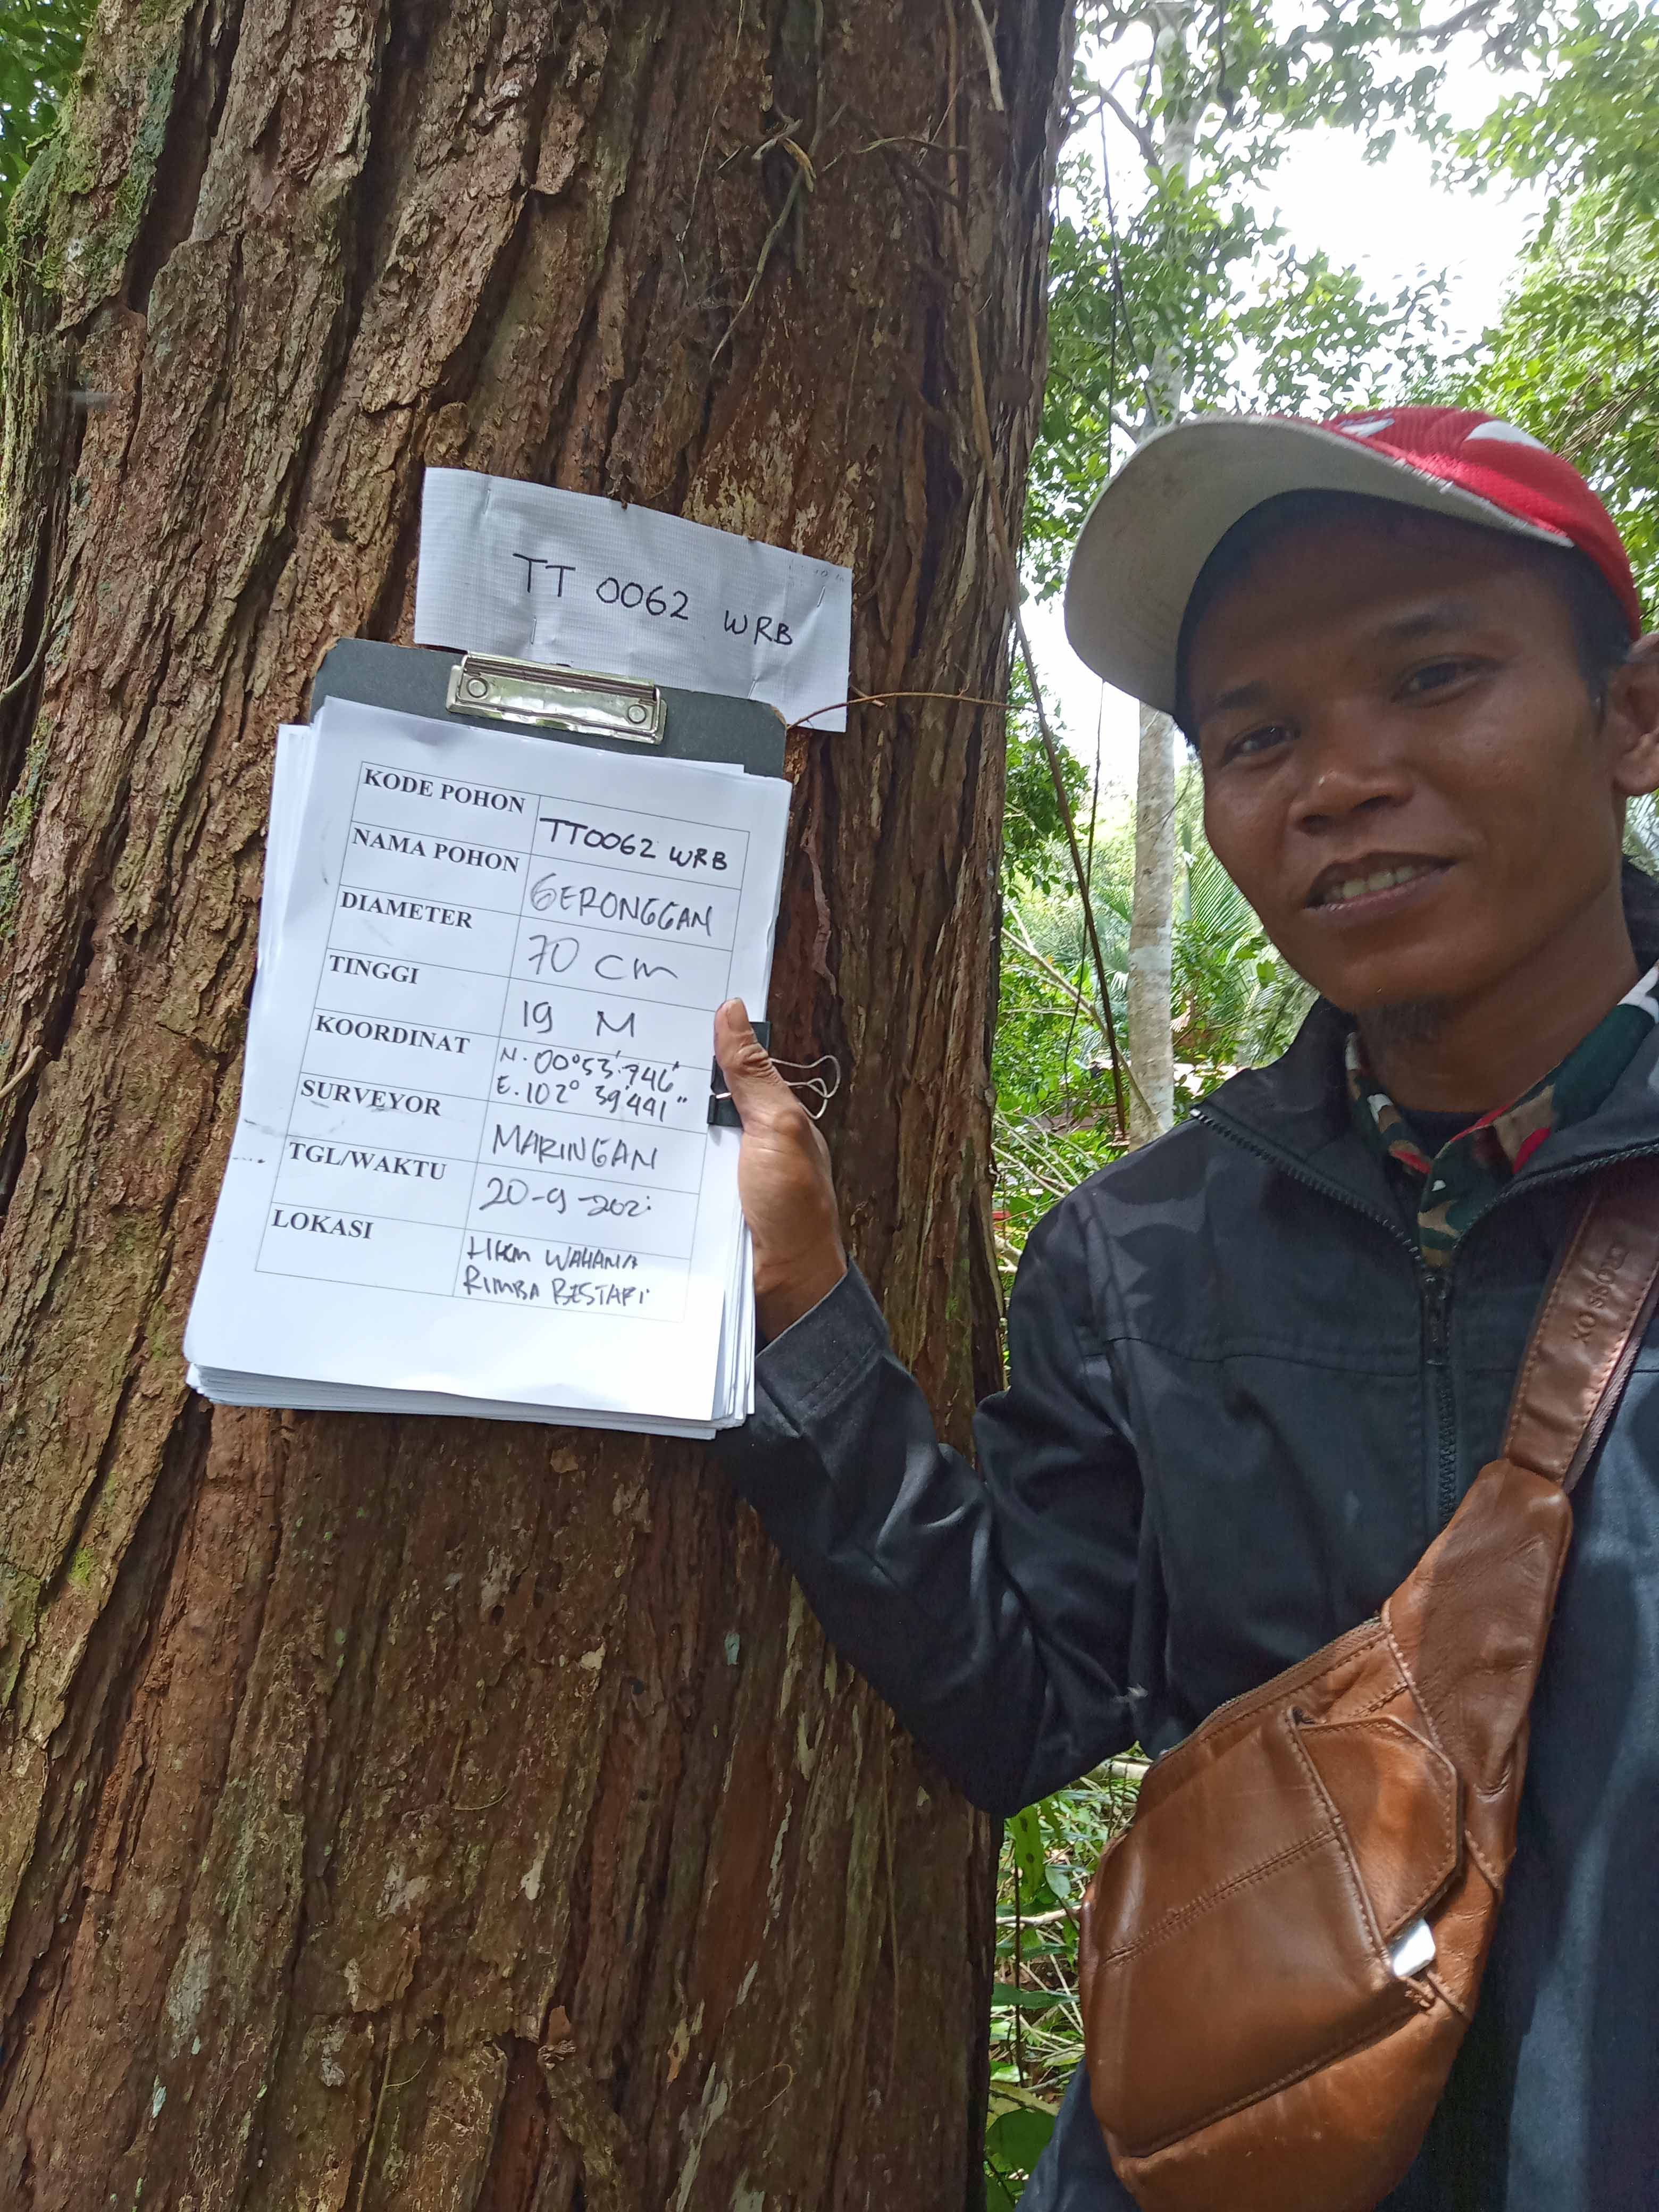 TT 0062 WRB
KODE POHON TT0062 WRB
NAMA POHON GERONGGAN
DIAMETER 70 cm
TINGGI 19 M
KOORDINAT N. 00°53'.746"
E. 102° 39'441"
SURVEYOR MARINGAN
TGL/WAKTU 20-9-2021
LOKASI HKM WAHANA
RIMBA BESTARI
CROSS OX